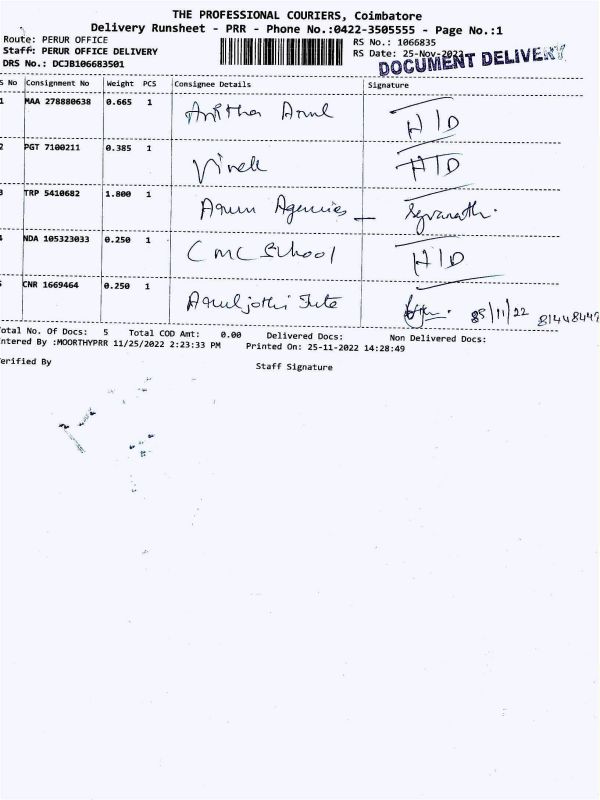 THE PROFESSIONAL COURIERS, Coimbatore
Delivery Runsheet - PRR - Phone No.:0422-3505555 - Page No.:1
Route: PERUR OFFICE
RS No.: 1066835
Staff: PERUR OFFICE DELIVERY
RS Date: 25-Nov-2022
DRS No.: DCJB106683501
DOCUMENT DELIVERY
S No Consignment No Weight PCS Consignee Details Signature
1 MAA 278880638 0.665 1 Anitha Arul H/D
2 PGT 7100211 0.385 1 Vivek H/D
3 TRP 5410682 1.800 1 Arun Agencies
NDA 105323033 0.250 1 CMC School H/D
CNR 1669464 0.250 1 Aruljothi Jute 25/11/22
otal No. Of Docs: 5 Total COD Amt: 0.00 Delivered Docs: Non Delivered Docs:
ntered By :MOORTHYPRR 11/25/2022 2:23:33 PM Printed On: 25-11-2022 14:28:49
erified By
Staff Signature